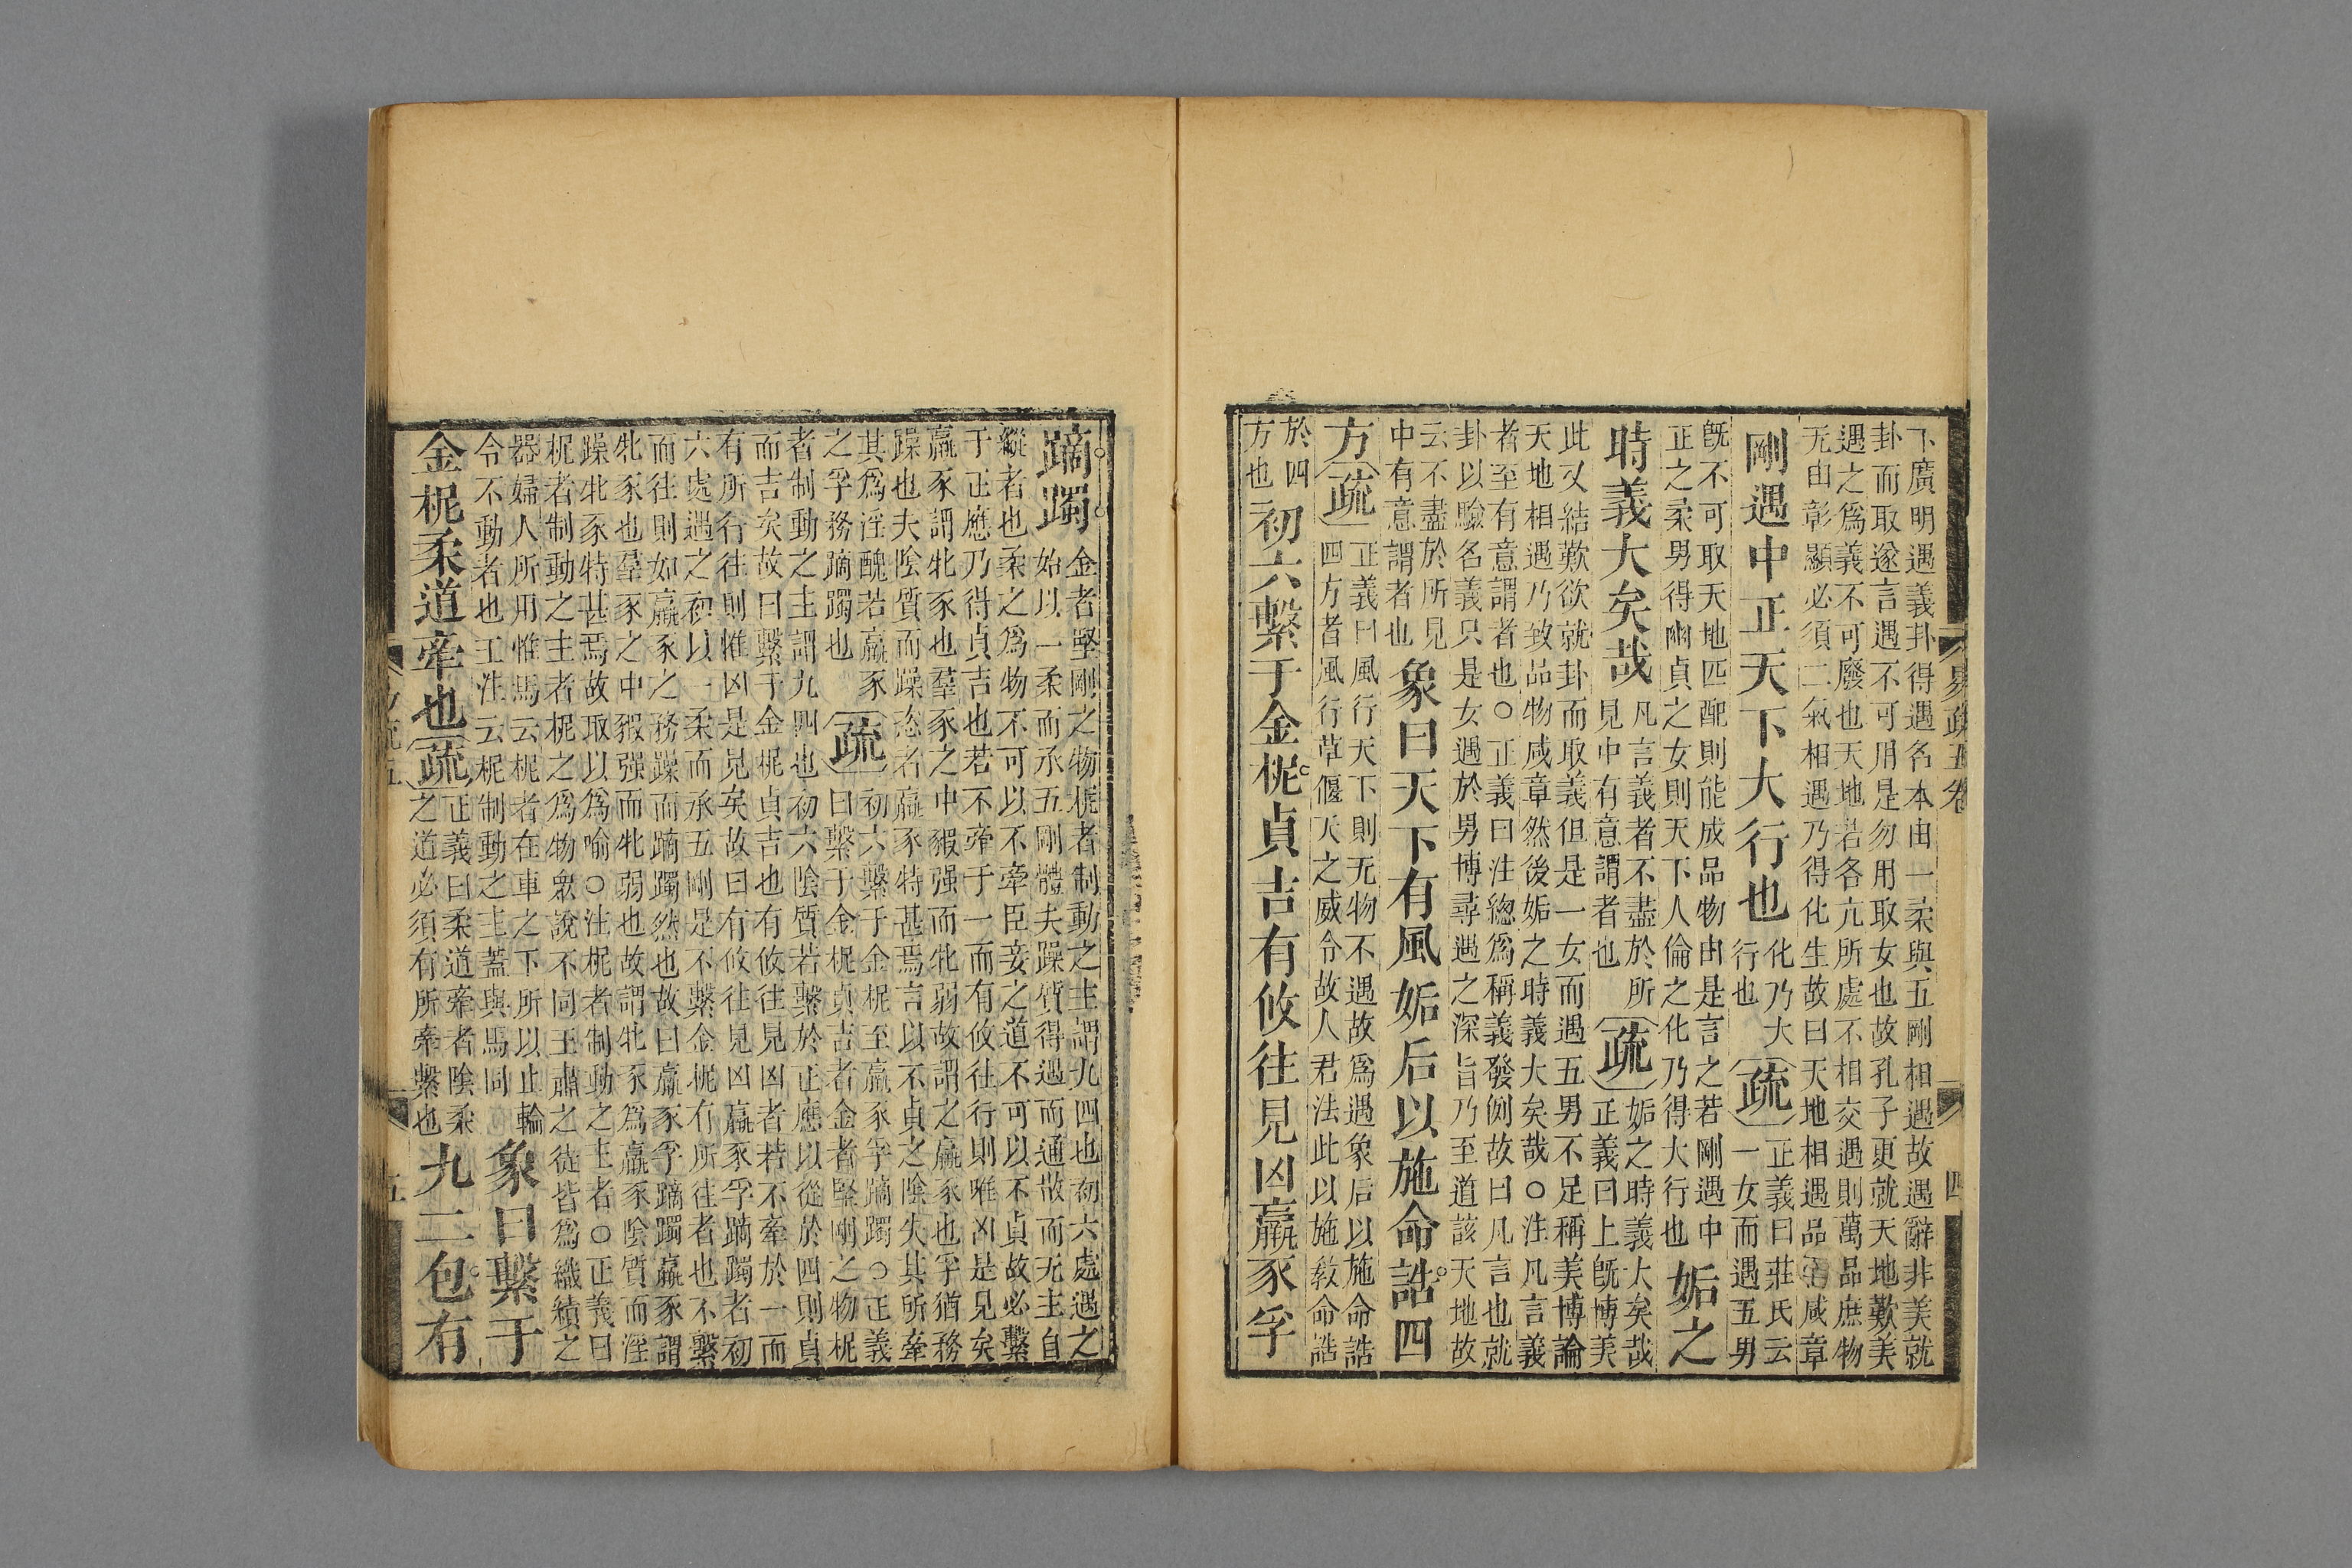 易疏五卷
四
下廣明遇義卦得遇名本由一柔與五剛相遇故遇辭非美就
卦而取遂言遇不可用是勿用取女也故孔子更就天地歎美
遇之爲義不可廢也天地若各亢所處不相交遇則萬品庶物
无由彰顯必須二氣相遇乃得化生故曰天地相遇品物咸章
剛遇中正天下大行也
化乃大
行也
疏
正義曰莊氏云
一女而遇五男
旣不可取天地匹配則能成品物由是言之若剛遇中
正之柔男得幽貞之女則天下人倫之化乃得大行也
姤之
時義大矣哉
凡言義者不盡於所
見中有意謂者也
疏
姤之時義大矣哉
正義曰上旣博美
此又結歎欲就卦而取義但是一女而遇五男不足稱美博論
天地相遇乃致品物咸章然後姤之時義大矣哉○注凡言義
者至有意謂者也○正義曰注總爲稱義發例故曰凡言也就
卦以驗名義只是女遇於男博尋遇之深旨乃至道該天地故
云不盡於所見
中有意謂者也
象曰天下有風姤后以施命誥四
方
疏
正義曰風行天下則无物不遇故爲遇象后以施命誥
四方者風行草偃天之威令故人君法此以施敎命誥
於四
方也
初六繫于金柅貞吉有攸往見凶羸豕孚
蹢躅
金者堅剛之物柅者制動之主謂九四也初六處遇之
始以一柔而承五剛體夫躁質得遇而通散而无主自
縱者也柔之爲物不可以不牽臣妾之道不可以不貞故必繫
于正應乃得貞吉也若不牽于一而有攸往行則唯凶是見矣
羸豕謂牝豕也羣豕之中豭强而牝弱故謂之羸豕也孚猶務
躁也夫陰質而躁恣者羸豕特甚焉言以不貞之陰失其所牽
其爲淫醜若羸豕
之孚務蹢躅也
疏
初六繫于金柅至羸豕孚蹢躅○正義
曰繫于金柅貞吉者金者堅剛之物柅
者制動之主謂九四也初六陰質若繫於正應以從於四則貞
而吉矣故曰繫于金柅貞吉也有攸往見凶者若不牽於一而
有所行往則惟凶是見矣故曰有攸往見凶羸豕孚蹢躅者初
六處遇之初以一柔而承五剛是不繫金柅有所往者也不繫
而往則如羸豕之務躁而蹢躅然也故曰羸豕孚蹢躅羸豕謂
牝豕也羣豕之中豭强而牝弱也故謂牝豕爲羸豕陰質而淫
躁牝豕特甚焉故取以爲喻○注柅者制動之主者○正義曰
柅者制動之主者柅之爲物衆說不同王肅之徒皆爲織績之
器婦人所用惟馬云柅者在車之下所以止輪
令不動者也王注云柅制動之主蓋與馬同
象曰繫于
金柅柔道牽也
疏
正義曰柔道牽者陰柔
之道必須有所牽繫也
九二包有
五